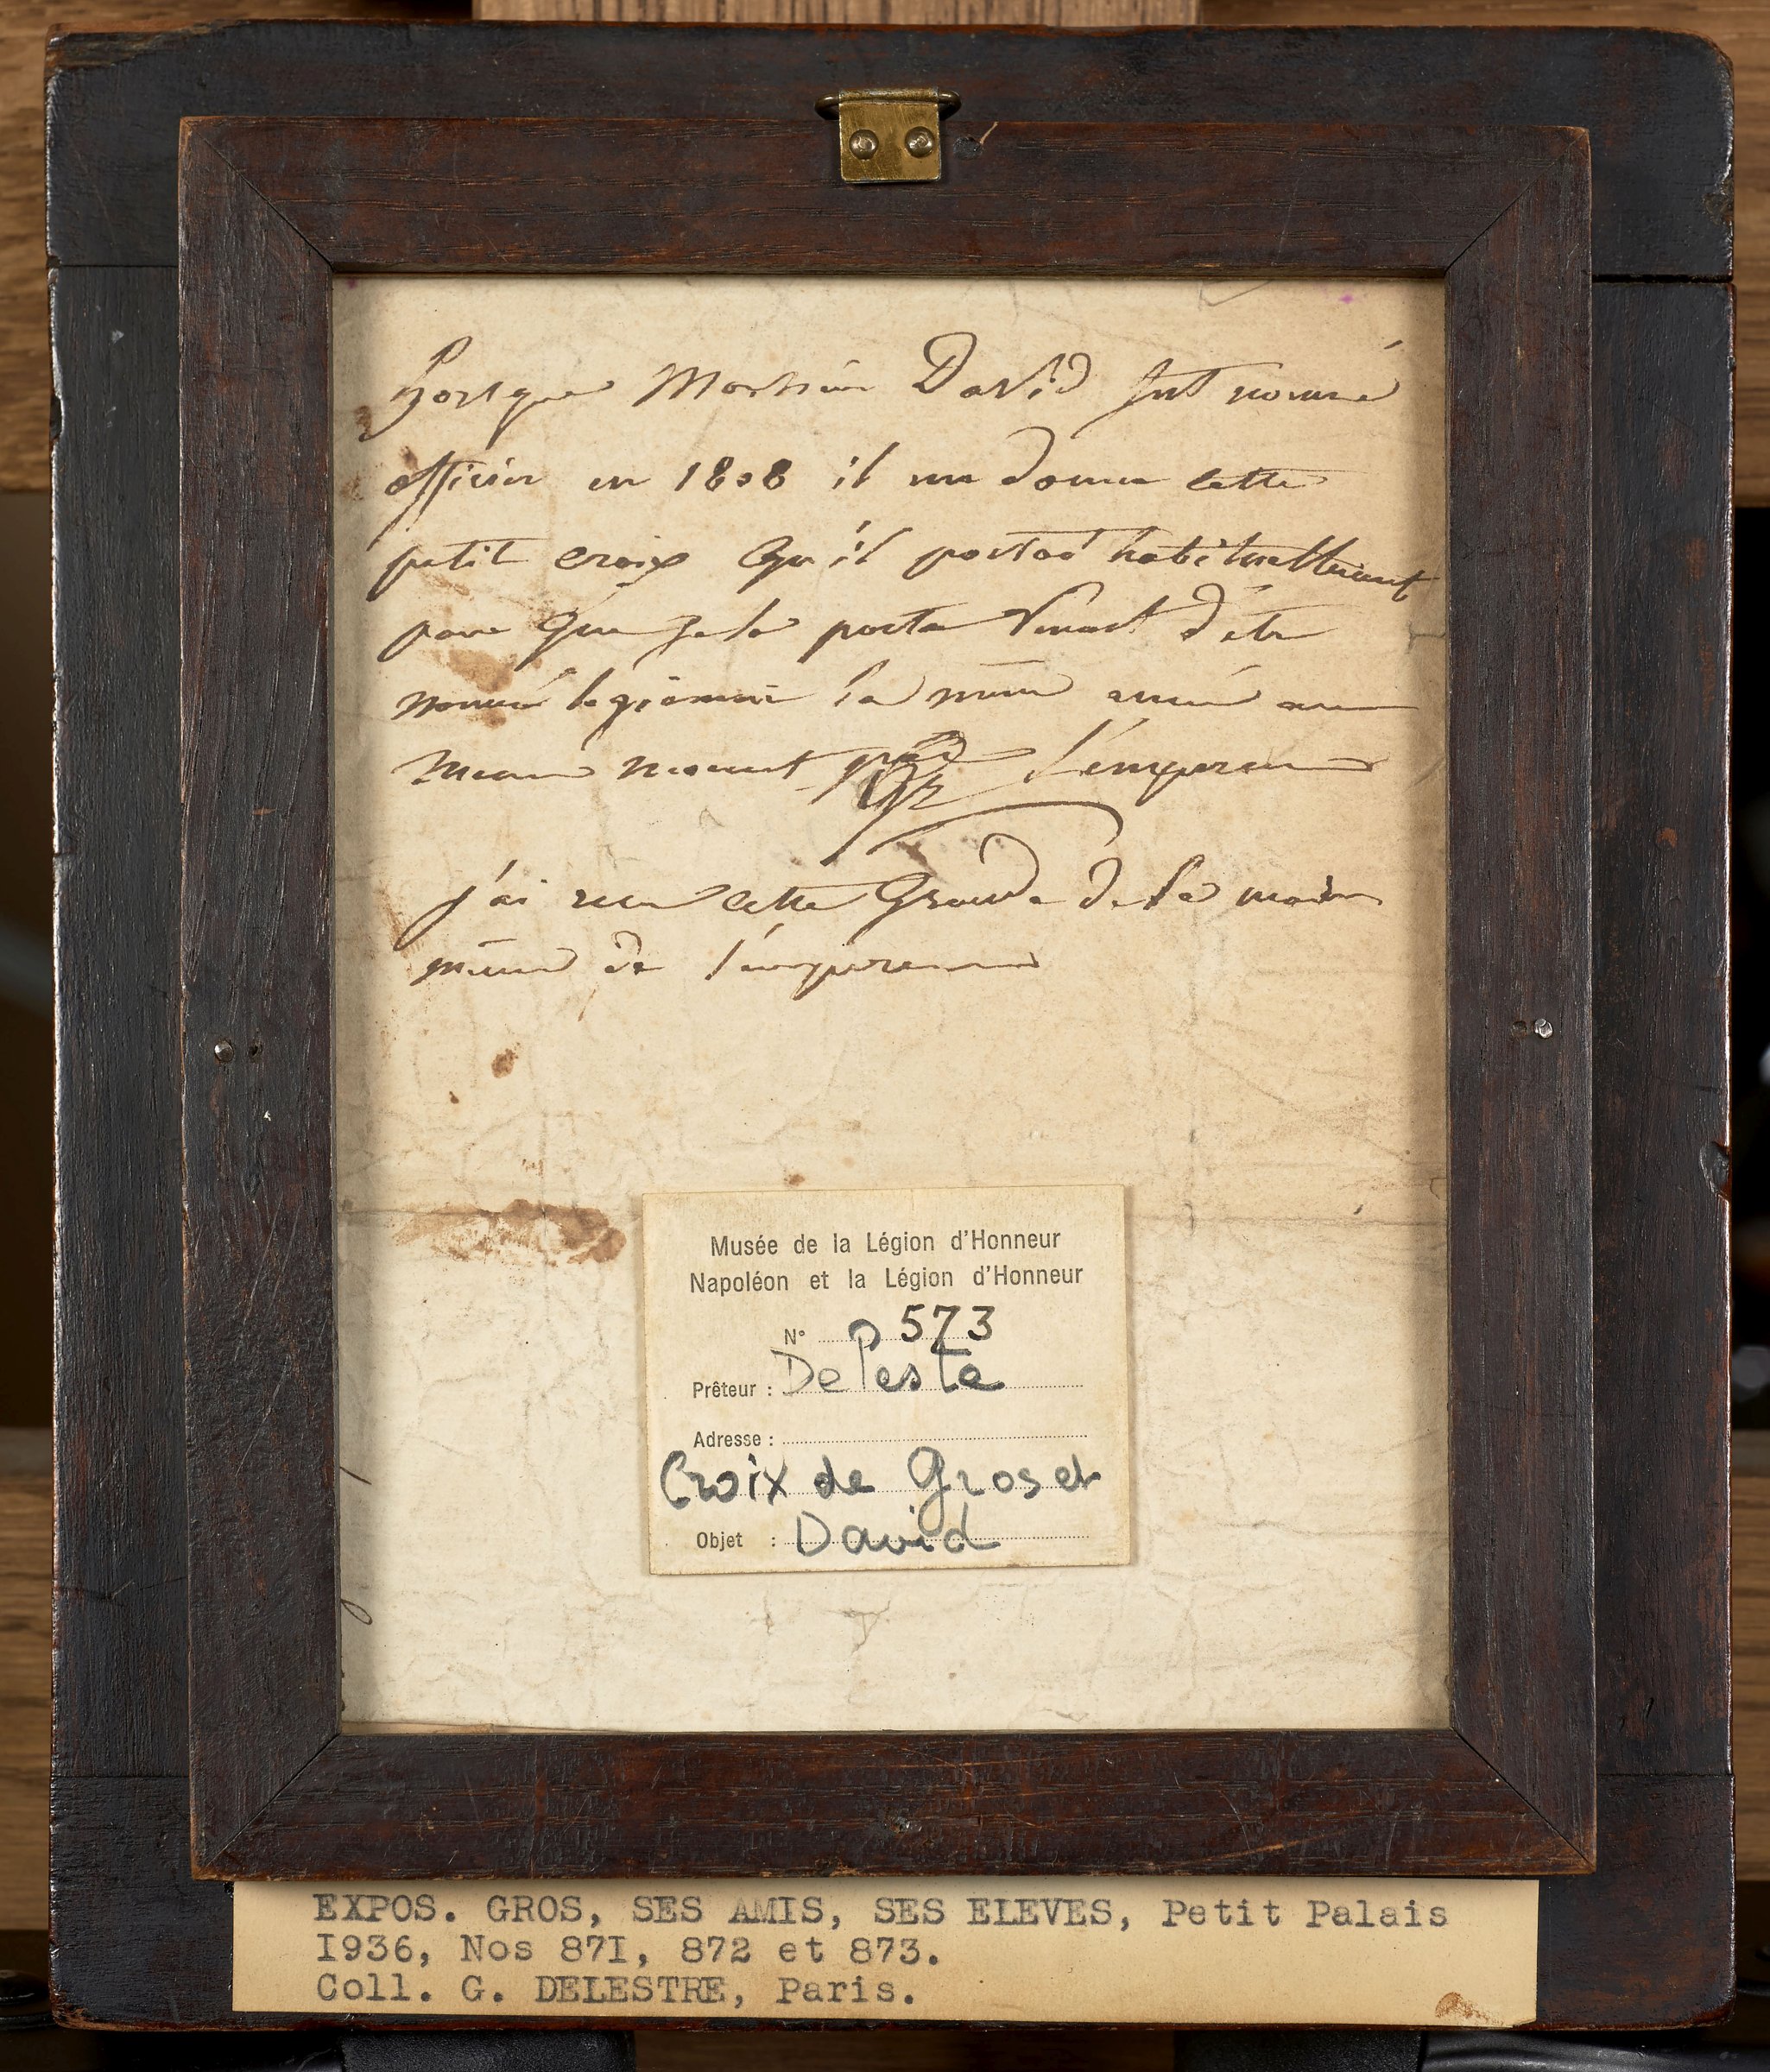 Lorsque Monsieur David fut nommé
officier en 1808 il me donna cette
petit croix qu'il portoit habituellement
pour que je la porta venant d'être
nommé legionnair la même année au
meme moment par l'empereur
j'ai reçu cette Grande de la main
même de l'empereur
Musée de la Légion d'Honneur
Napoléon et la Légion d'Honneur
N° 573
Prêteur : Deleste
Adresse :
Croix de Gros et
Objet : David
EXPOS. GROS, SES AMIS, SES ELEVES, Petit Palais
I936, Nos 87I, 872 et 873.
Coll. G. DELESTRE, Paris.